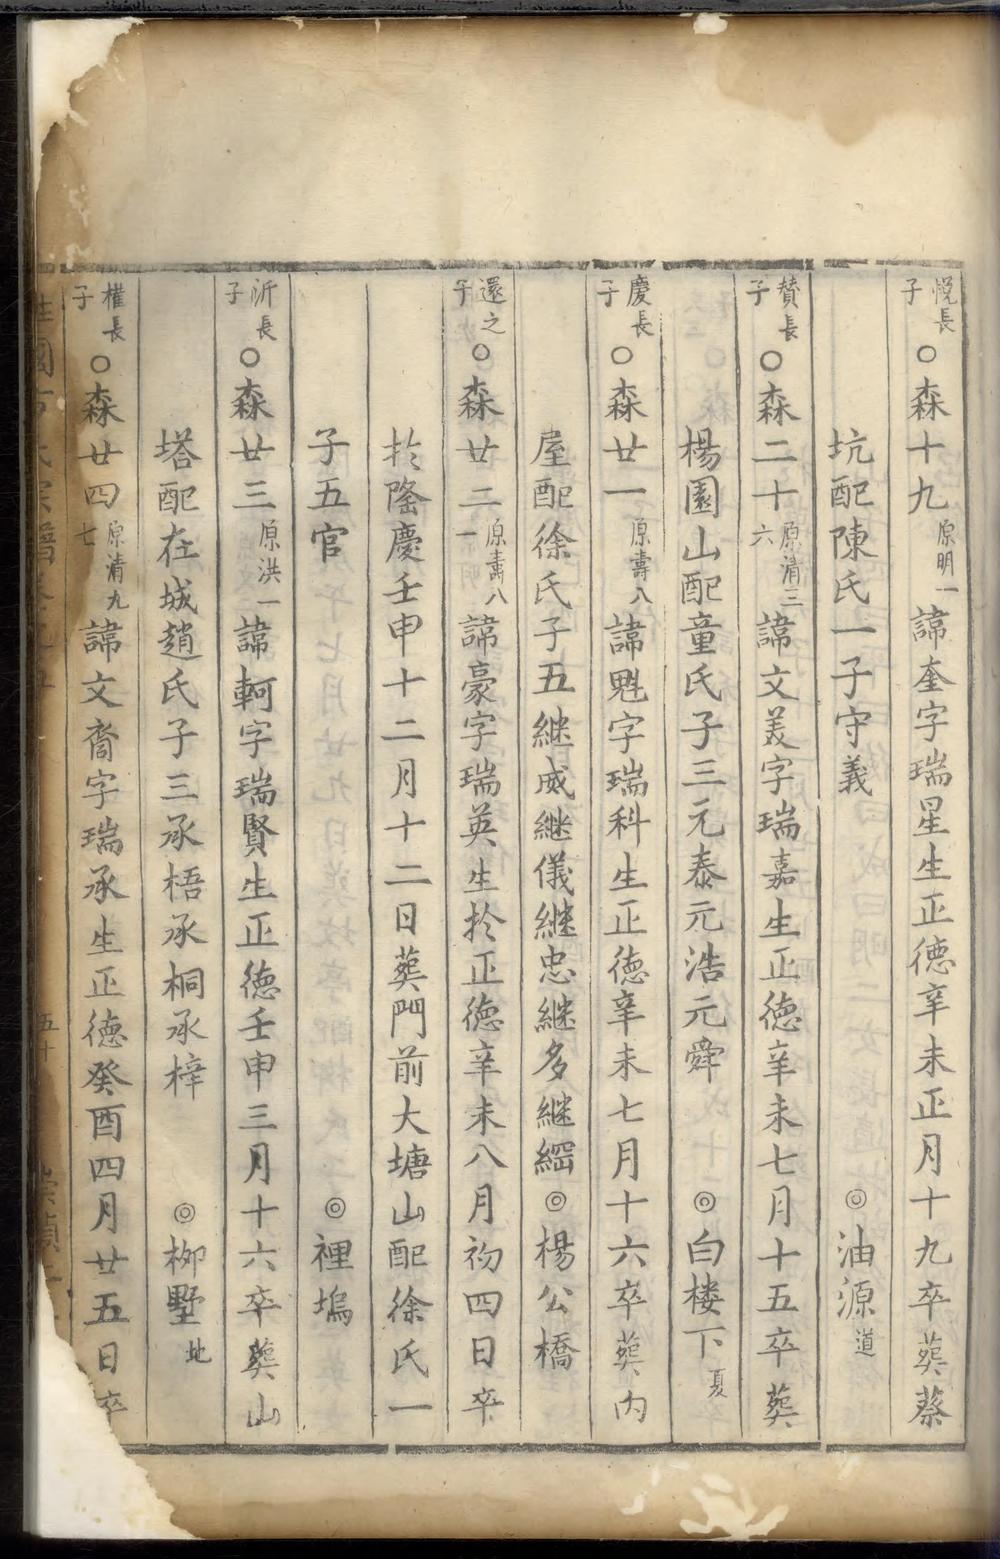 悅長子○森十九原明一諱奎字瑞星生正德辛未正月十九卒葬蔡
坑配陳氏一子守義◎油源道
贊長子○森二十原清三六諱文美字瑞嘉生正德辛未七月十五卒葬
楊園山配童氏子三元泰元浩元舜◎白楼下夏
慶長子○森廿一原壽八諱魁字瑞科生正德辛未七月十六卒葬内
屋配徐氏子五継威継儀継忠継多継綱◎楊公橋
還之子○森廿二原壽八一諱豪字瑞英生扵正德辛未八月初四日卒
扵隆慶壬申十二月十二日葬門前大塘山配徐氏一
子五官◎裡塢
沂長子○森廿三原洪一諱軻字瑞賢生正德壬申三月十六卒葬山
塔配在城趙氏子三承梧承桐承梓◎柳墅地
權長子○森廿四原清九七諱文喬字瑞承生正德癸酉四月廿五日卒
五十